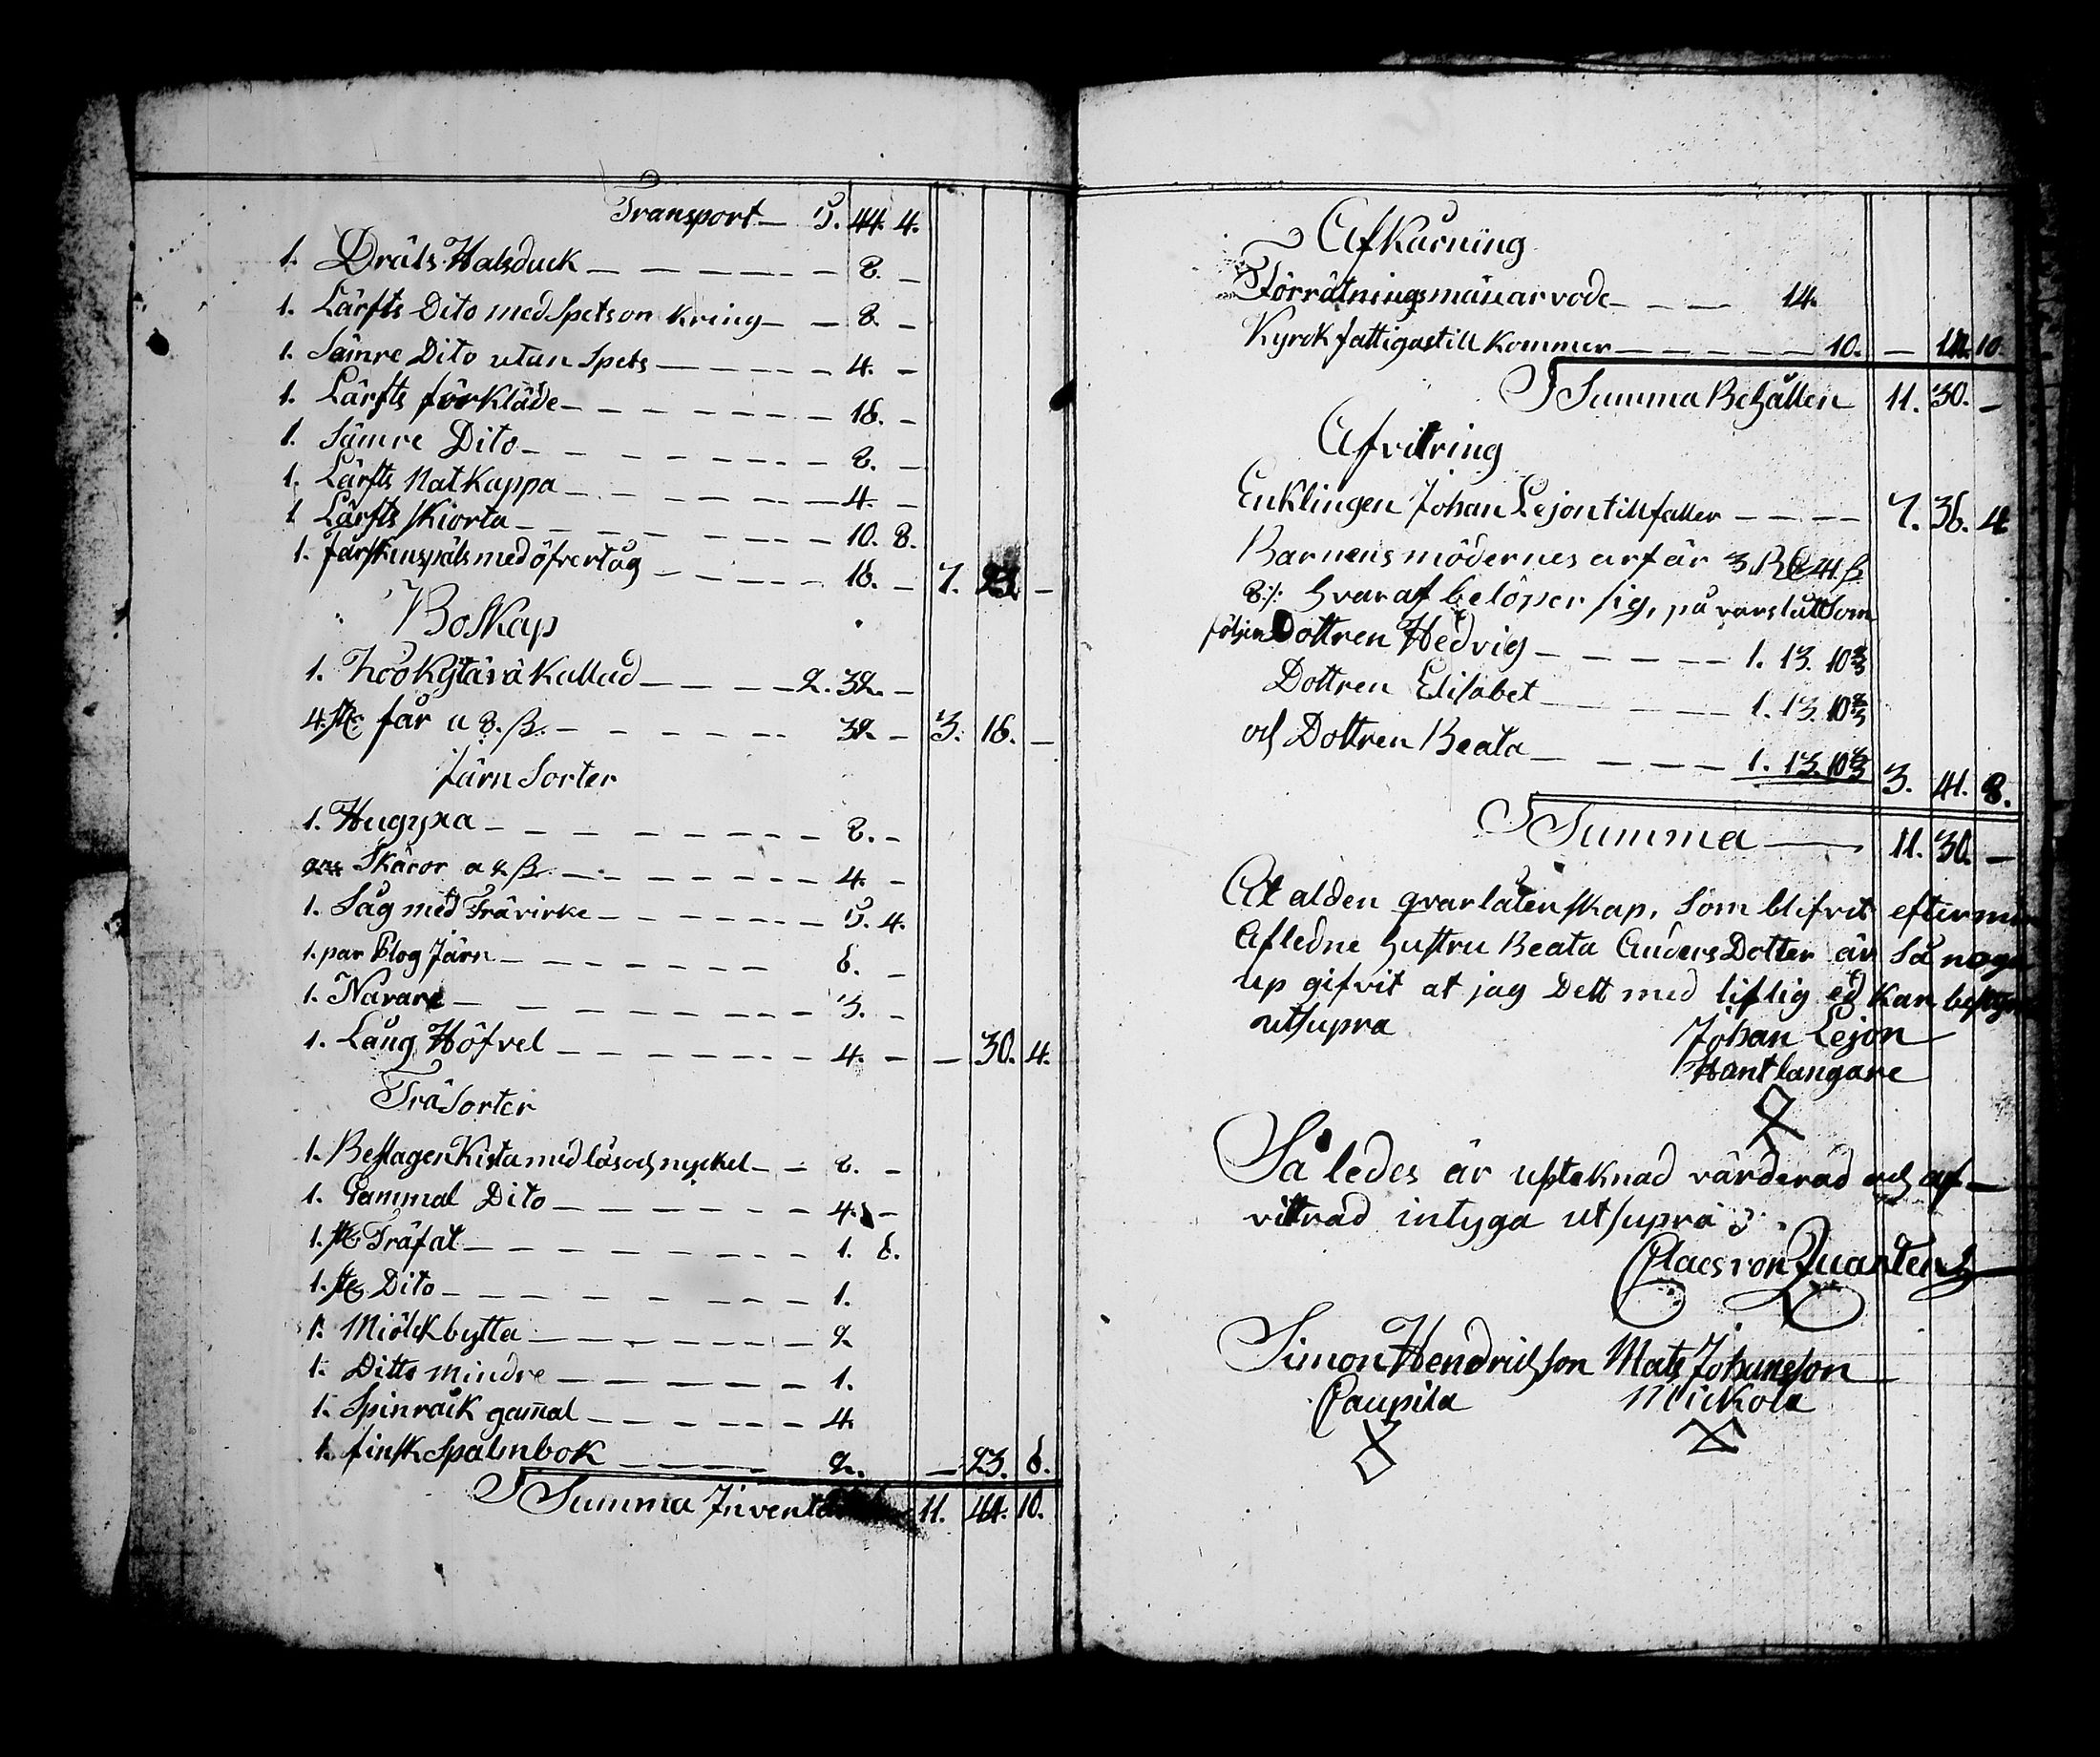 Transport — 5. 44. 4.
1. Dräls Halsduck — — — — — 8. —
1. Lärfts Dito med Spetson kring — — 8. —
1. Sämre Dito utan Spets — — — — 4. —
1. Lärfts förkläde — — — — — 16. —
1. Sämre Dito — — — — — — 8. —
1. Lärfts Nat Kappa — — — — — 4. —
1 Lärfts Skiorta — — — — — 10. 8.
1. fårskinspäls med öfvertåg — — — — 16. — 7. 23. —
Boskap
1. Koo Kytävä Kallad — — — — 2. 32. —
4. st: får a 8. ß. — — — — — 32. — 3. 16. —
Järn Sorter
1. Hugyxa — — — — — — — 8. —
Skäror a 2 ß. — — — — — — 4. —
1. Såg med Trävirke — — — — — 5. 4.
1. par Plog Järn — — — — — — 6. —
1. Navare — — — — — — — 3. —
1. Lång Höfvel — — — — — — 4. — — 30. 4.
Trä Sorter
1. Beslagen Kista med lås och nyckel — — 8. —
1. Gammal Dito — — — — — — 4. —
1. st: Träfat — — — — — — — 1. 6.
1. st: Dito — — — — — — — 1.
1. Miölck bytta — — — — — — 2
1. Ditto Mindre — — — — — — 1.
1. Spinråck gam̄al — — — — — 4.
1. finsk Spalmbok — — — — 2. — 23. 6.
Summa 11. 44. 10.
Afkårning
Förrätningsmän̄arvode — — — 14.
Kyrck fattigastill kommer — — — — — 10. — 14. 10.
Summa Behållen 11. 30. —
Afvitring
Enklingen Johan Lejon tillfaller — — — — 7. 36. 4
Barnens mödernes arf är 3 Rd 41. ß
8./. hvar af belöper sig, på vars lått som
följer Dottren Hedvig — — — — — 1. 13. 10⅔
Dottren Elisabet — — — — — 1. 13. 10⅔
och Dottren Beata — — — — — 1. 13. 10⅔ 3. 41. 8.
Summa — 11. 30. —
At alden qvarlåtenskap, som blifvit efter min
Afledne hustru Beata Anders Dotter är så noga
up gifvit at jag Dett med liflig ed kan
utsupra Johan Lejon
Hantlangare
Så ledes är upteknad värderad och af—
vittrad intyga utsupra
Claes von Quanten
Simon Hendrichson Mats Johansson
Caupila Mickola